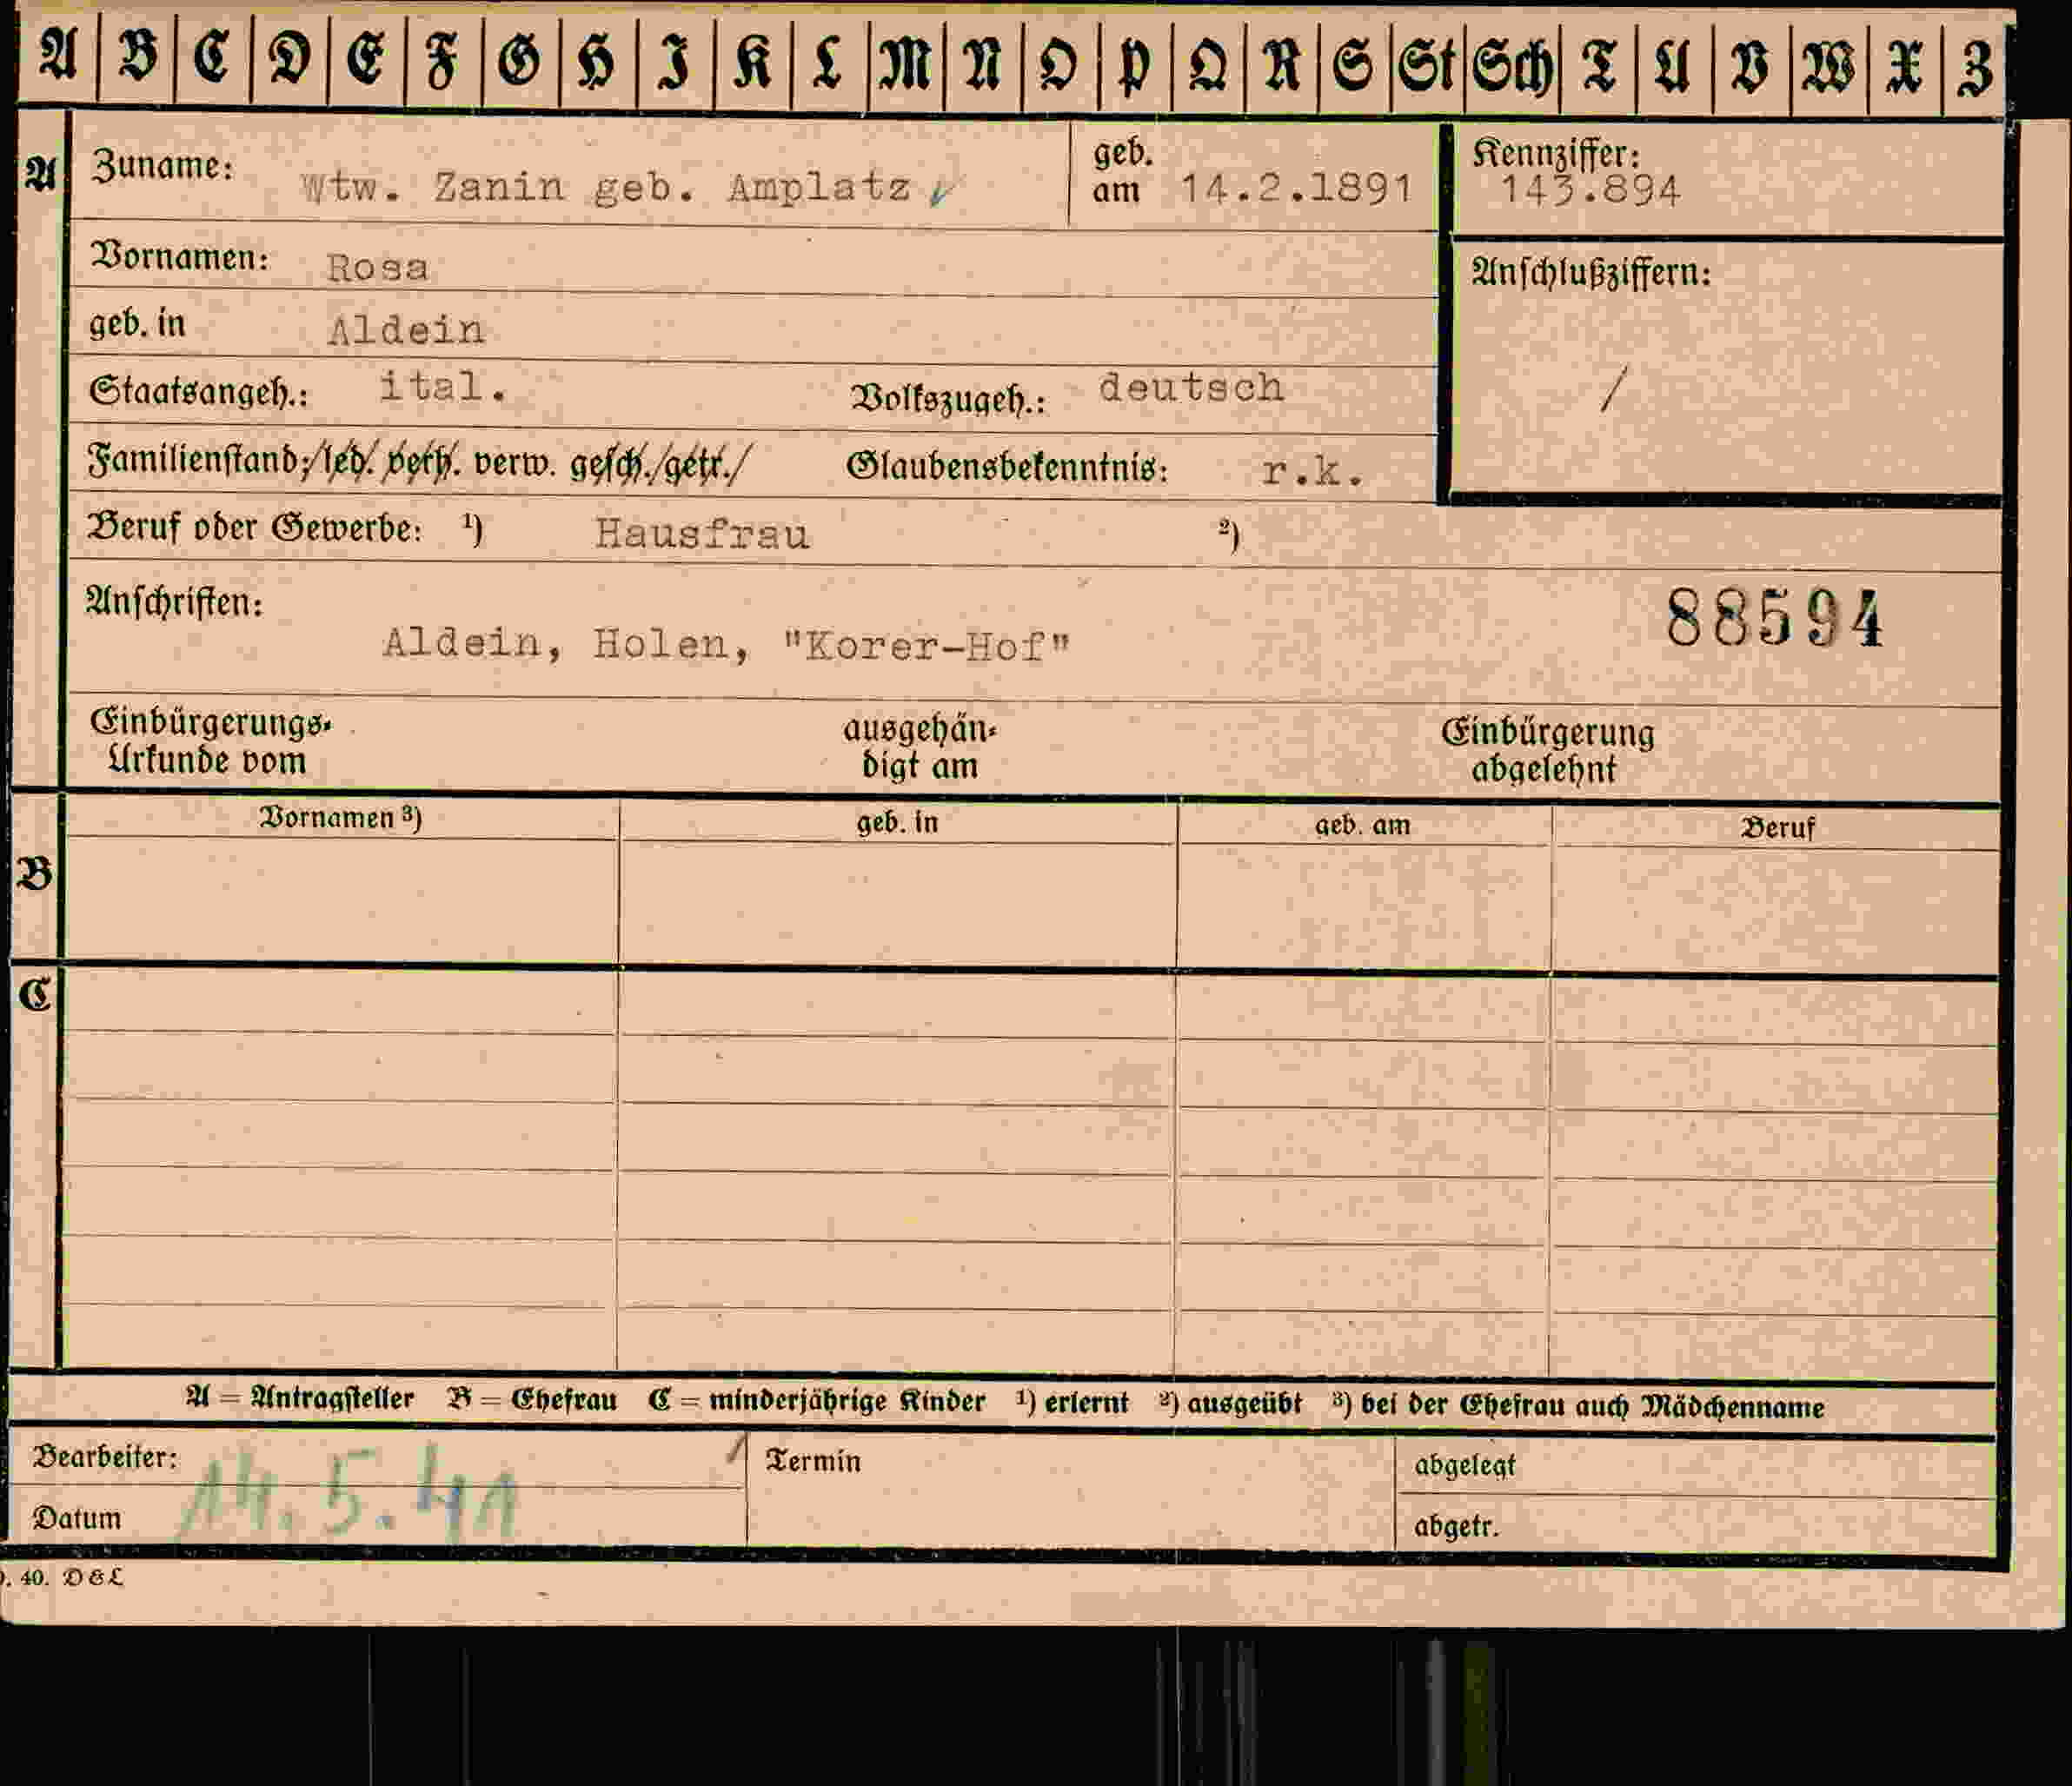 A B C D E F G H I K L M N O P Q R S St Sch T U V W X Z
A
Zuname: Wtw. Zanin geb. Amplatz
geb. am 14.2.1891
Kennziffer: 143.894
Vornamen: Rosa
Anschlußziffern: /
geb. in Aldein
Staatsangeh.: ital. Volkszugeh.: deutsch
Familienstand: led. verh. verw. gesch. getr. Glaubensbekenntnis: r.k.
Beruf oder Gewerbe: ¹) Hausfrau ²)
Anschriften:
88594
Aldein, Holen, "Korer-Hof"
Einbürgerungs-
Urkunde vom
ausgehän-
digt am
Einbürgerung
abgelehnt
Vornamen ³) geb. in geb. am Beruf
B
C
A = Antragsteller B = Ehefrau C = minderjährige Kinder ¹) erlernt ²) ausgeübt ³) bei der Ehefrau auch Mädchenname
Bearbeiter: Termin abgelegt
Datum 14.5.41 abgetr.
40. D & L